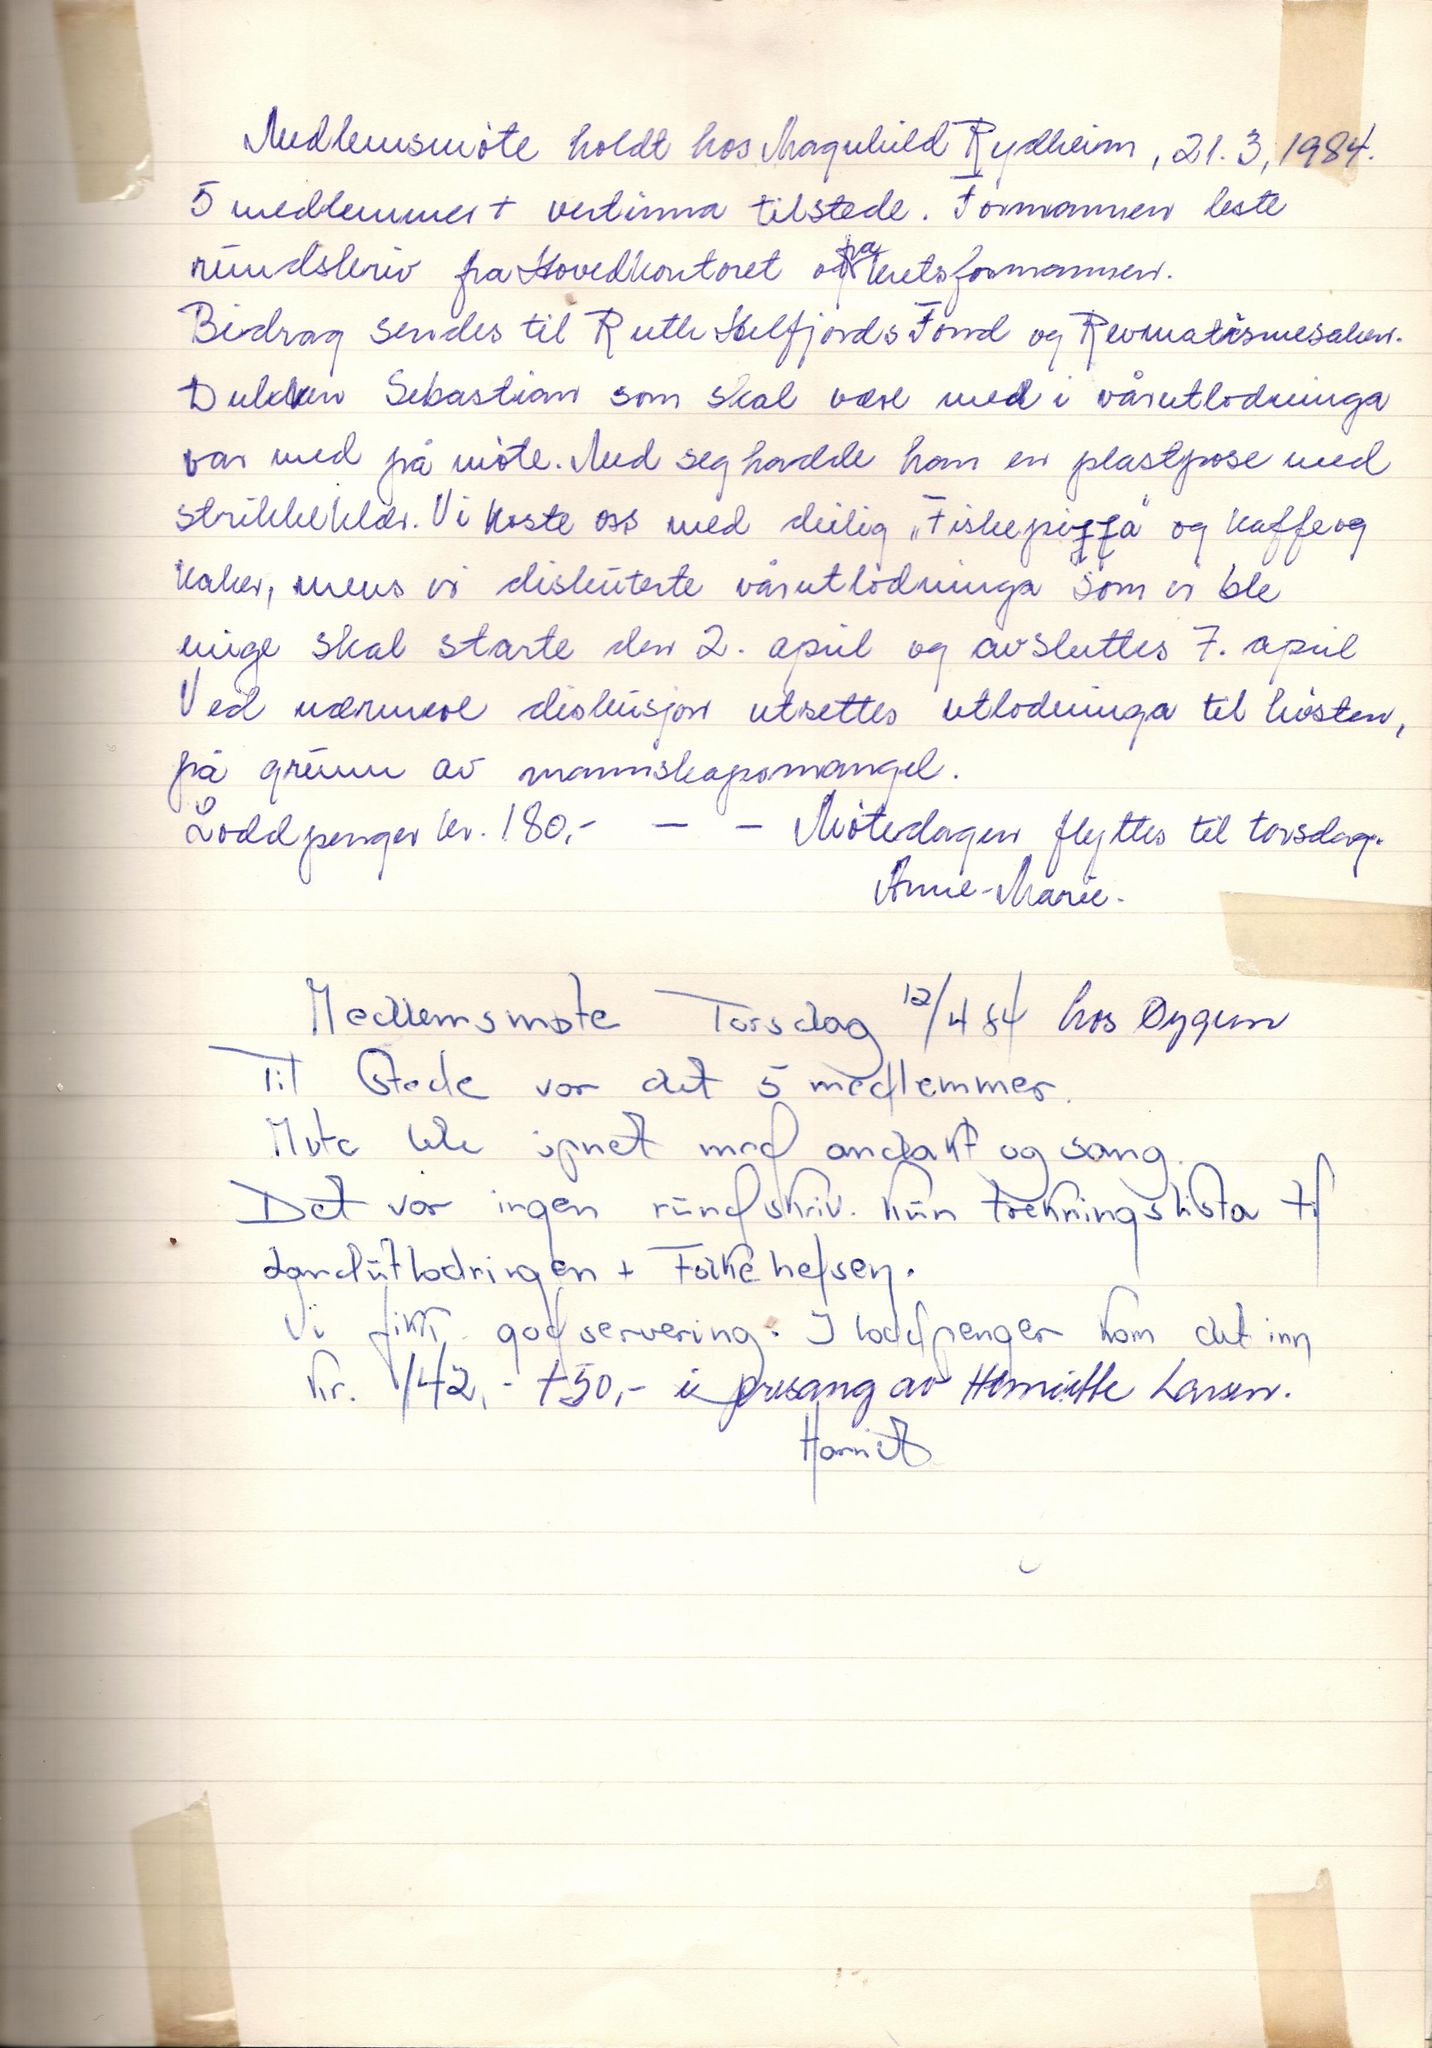 Medlemsmöte holdt hos Magnhild Rydheim, 21.3, 1984.
5 medlemmer + vertinna tilstede. Formannen leste
rundskriv fra Hovedkontoret og fra kretsformannen.
Bidrag sendes til Ruth Helfjords Fond og Revmatismesaken.
Dukken Sebastian som skal være med i vårutlodninga
var med på möte. Med seg hadde han en plastpose med
strikkeklær. Vi koste oss med deilig „Fiskepizza" og kaffe og
kaker, mens vi diskuterte vårutlodninga som vi ble
enige skal starte den 2. april og avsluttes 7. april
Ved nærmere diskusjon utsettes utlodninga til hösten,
på grunn av mannskapsmangel.
Loddpenger kr. 180,- — — Mötedagen flyttes til torsdag.
Anne-Marie.
Medlemsmøte Torsdag 12/4 84 hos Øygunn
Til Stede var det 5 medlemmer.
Møte ble åpnet med andakt og sang.
Det var ingen rundskriv. kun trekningslista til
Landsutlodningen + Folkehelsen.
Vi fikk god servering. I loddpenger kom det inn
kr. 142,- + 50,- i presang av Henriette Larsen.
Harriet